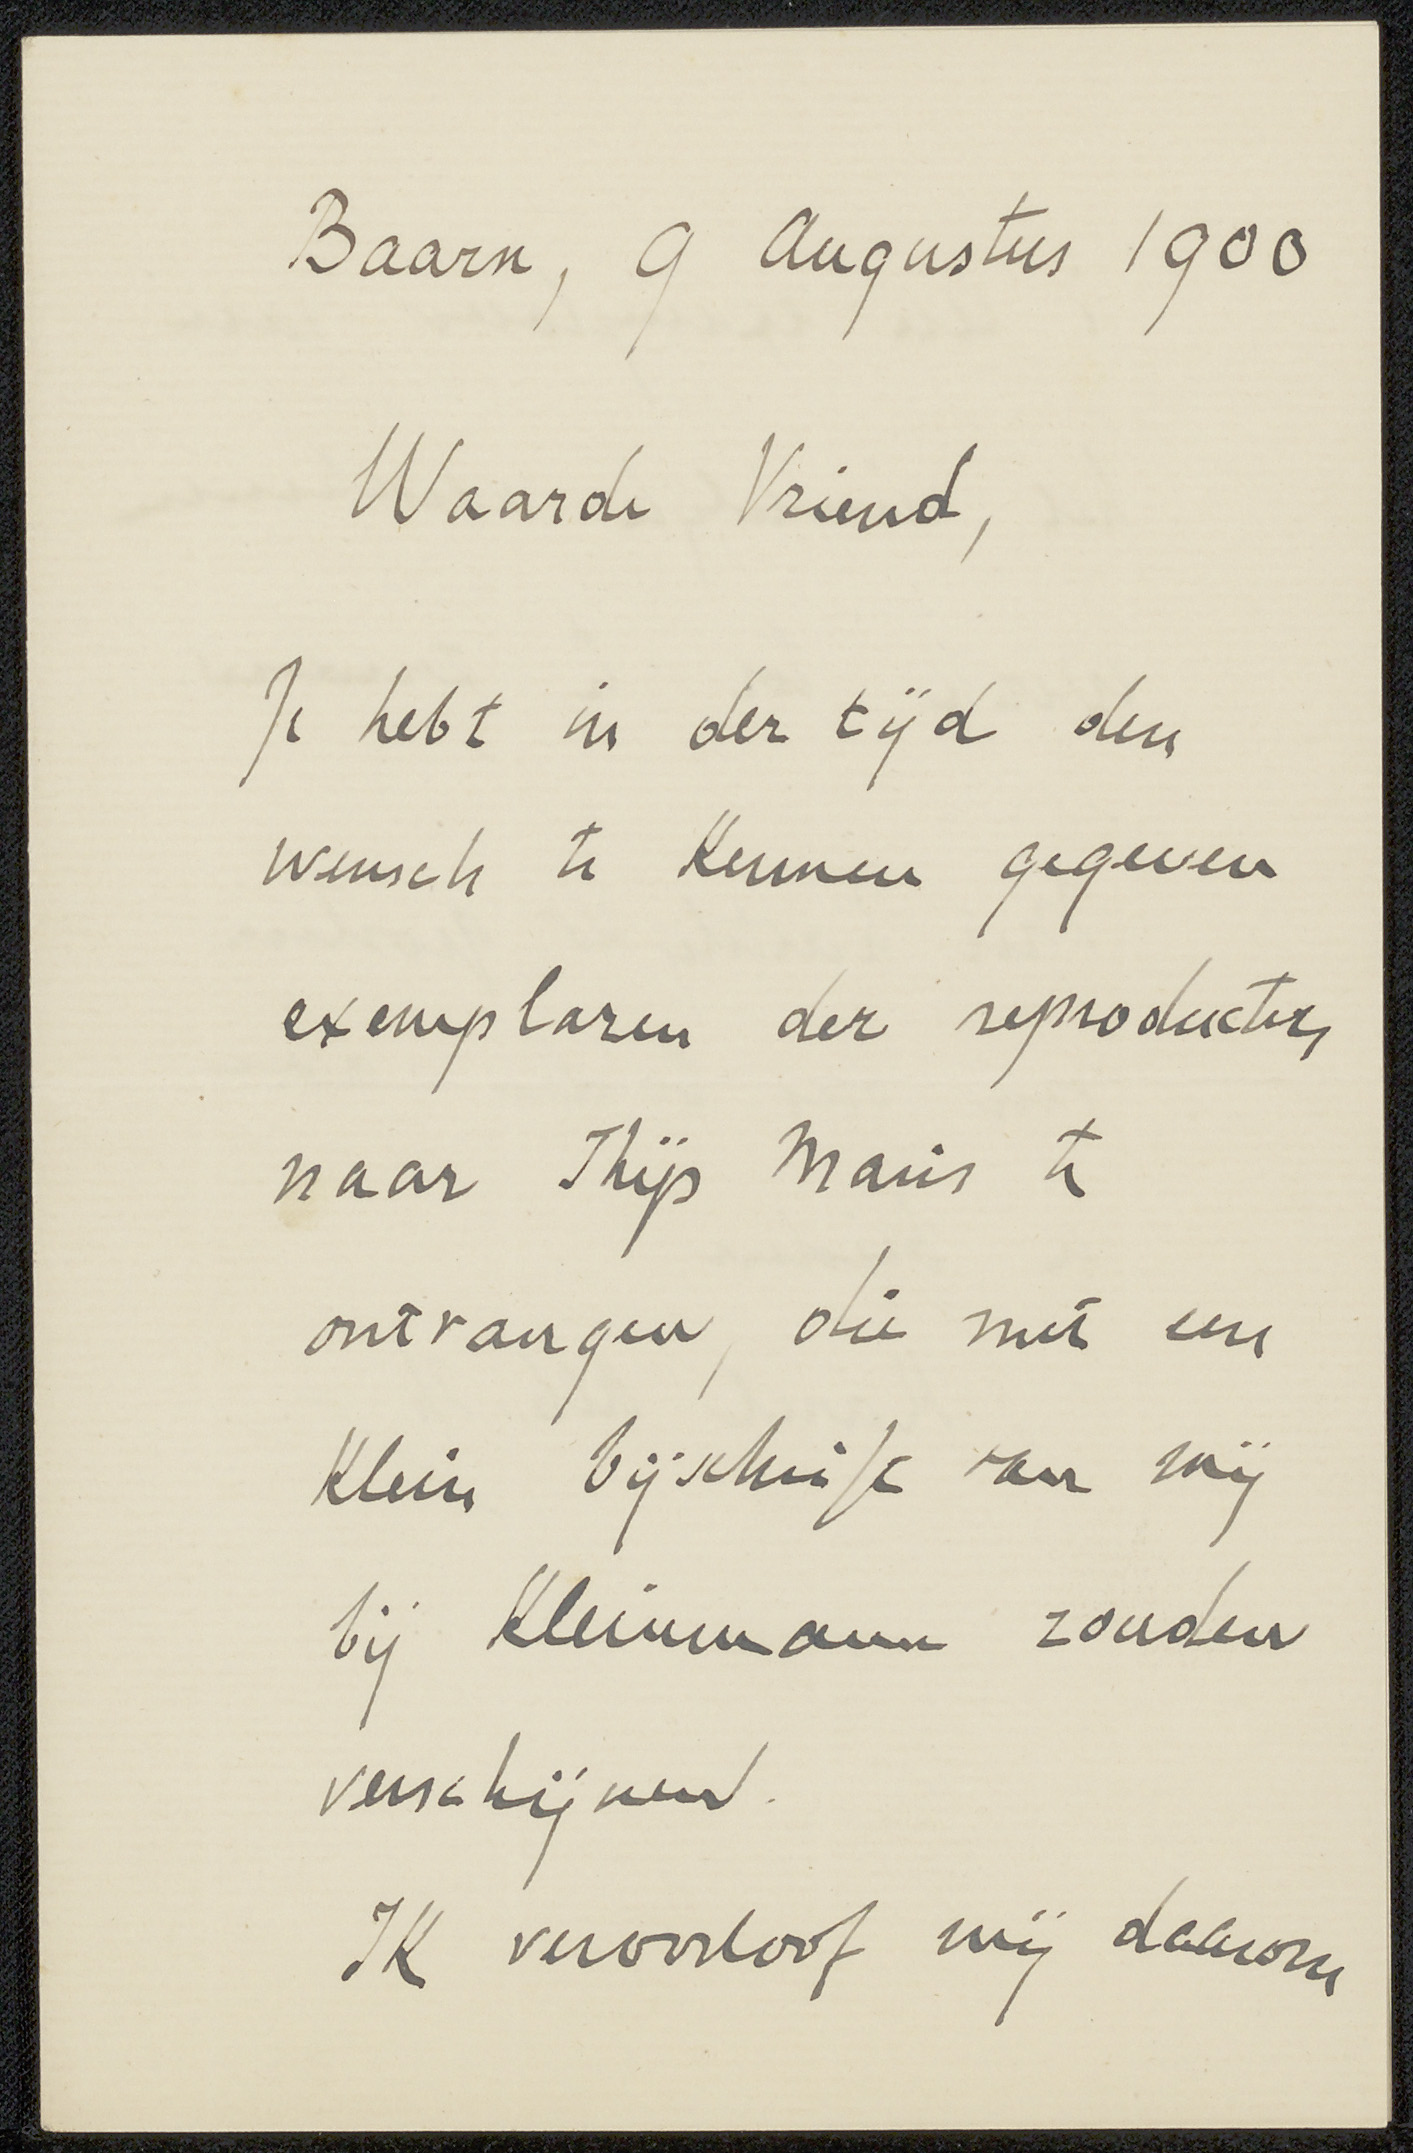 Baarn, 9 Augustus 1900
Waarde Vriend,
Je hebt in der tijd den
wensch te kennen gegeven
exemplaren der reproducties
naar Thijs Maris te
ontvangen, die met een
klein bijschrift van mij
bij Kleinmann zouden
verschijnen.
Ik veroorloof mij daarom